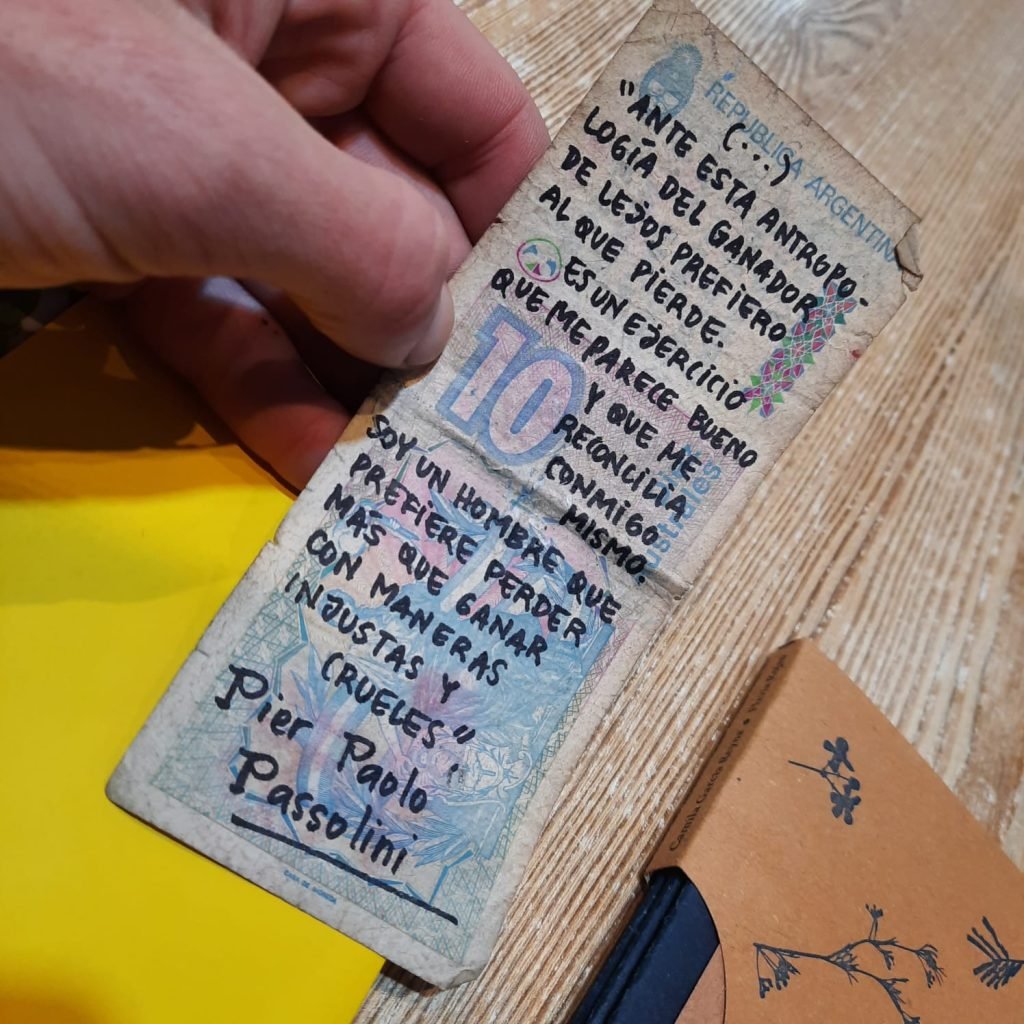 REPUBLICA ARGENTINA
(...)
"ANTE ESTA ANTROPO-
LOGÍA DEL GANADOR
DE LEJOS PREFIERO
AL QUE PIERDE.
ES UN EJERCICIO
QUE ME PARECE BUENO
Y QUE ME
RECONCILIA
CONMIGO
MISMO.
10
SOY UN HOMBRE QUE
PREFIERE PERDER
MÁS QUE GANAR
CON MANERAS
INJUSTAS Y
CRUELES"
Pier Paolo
Passolini
CASA DE MONEDA
Camila García Reyna